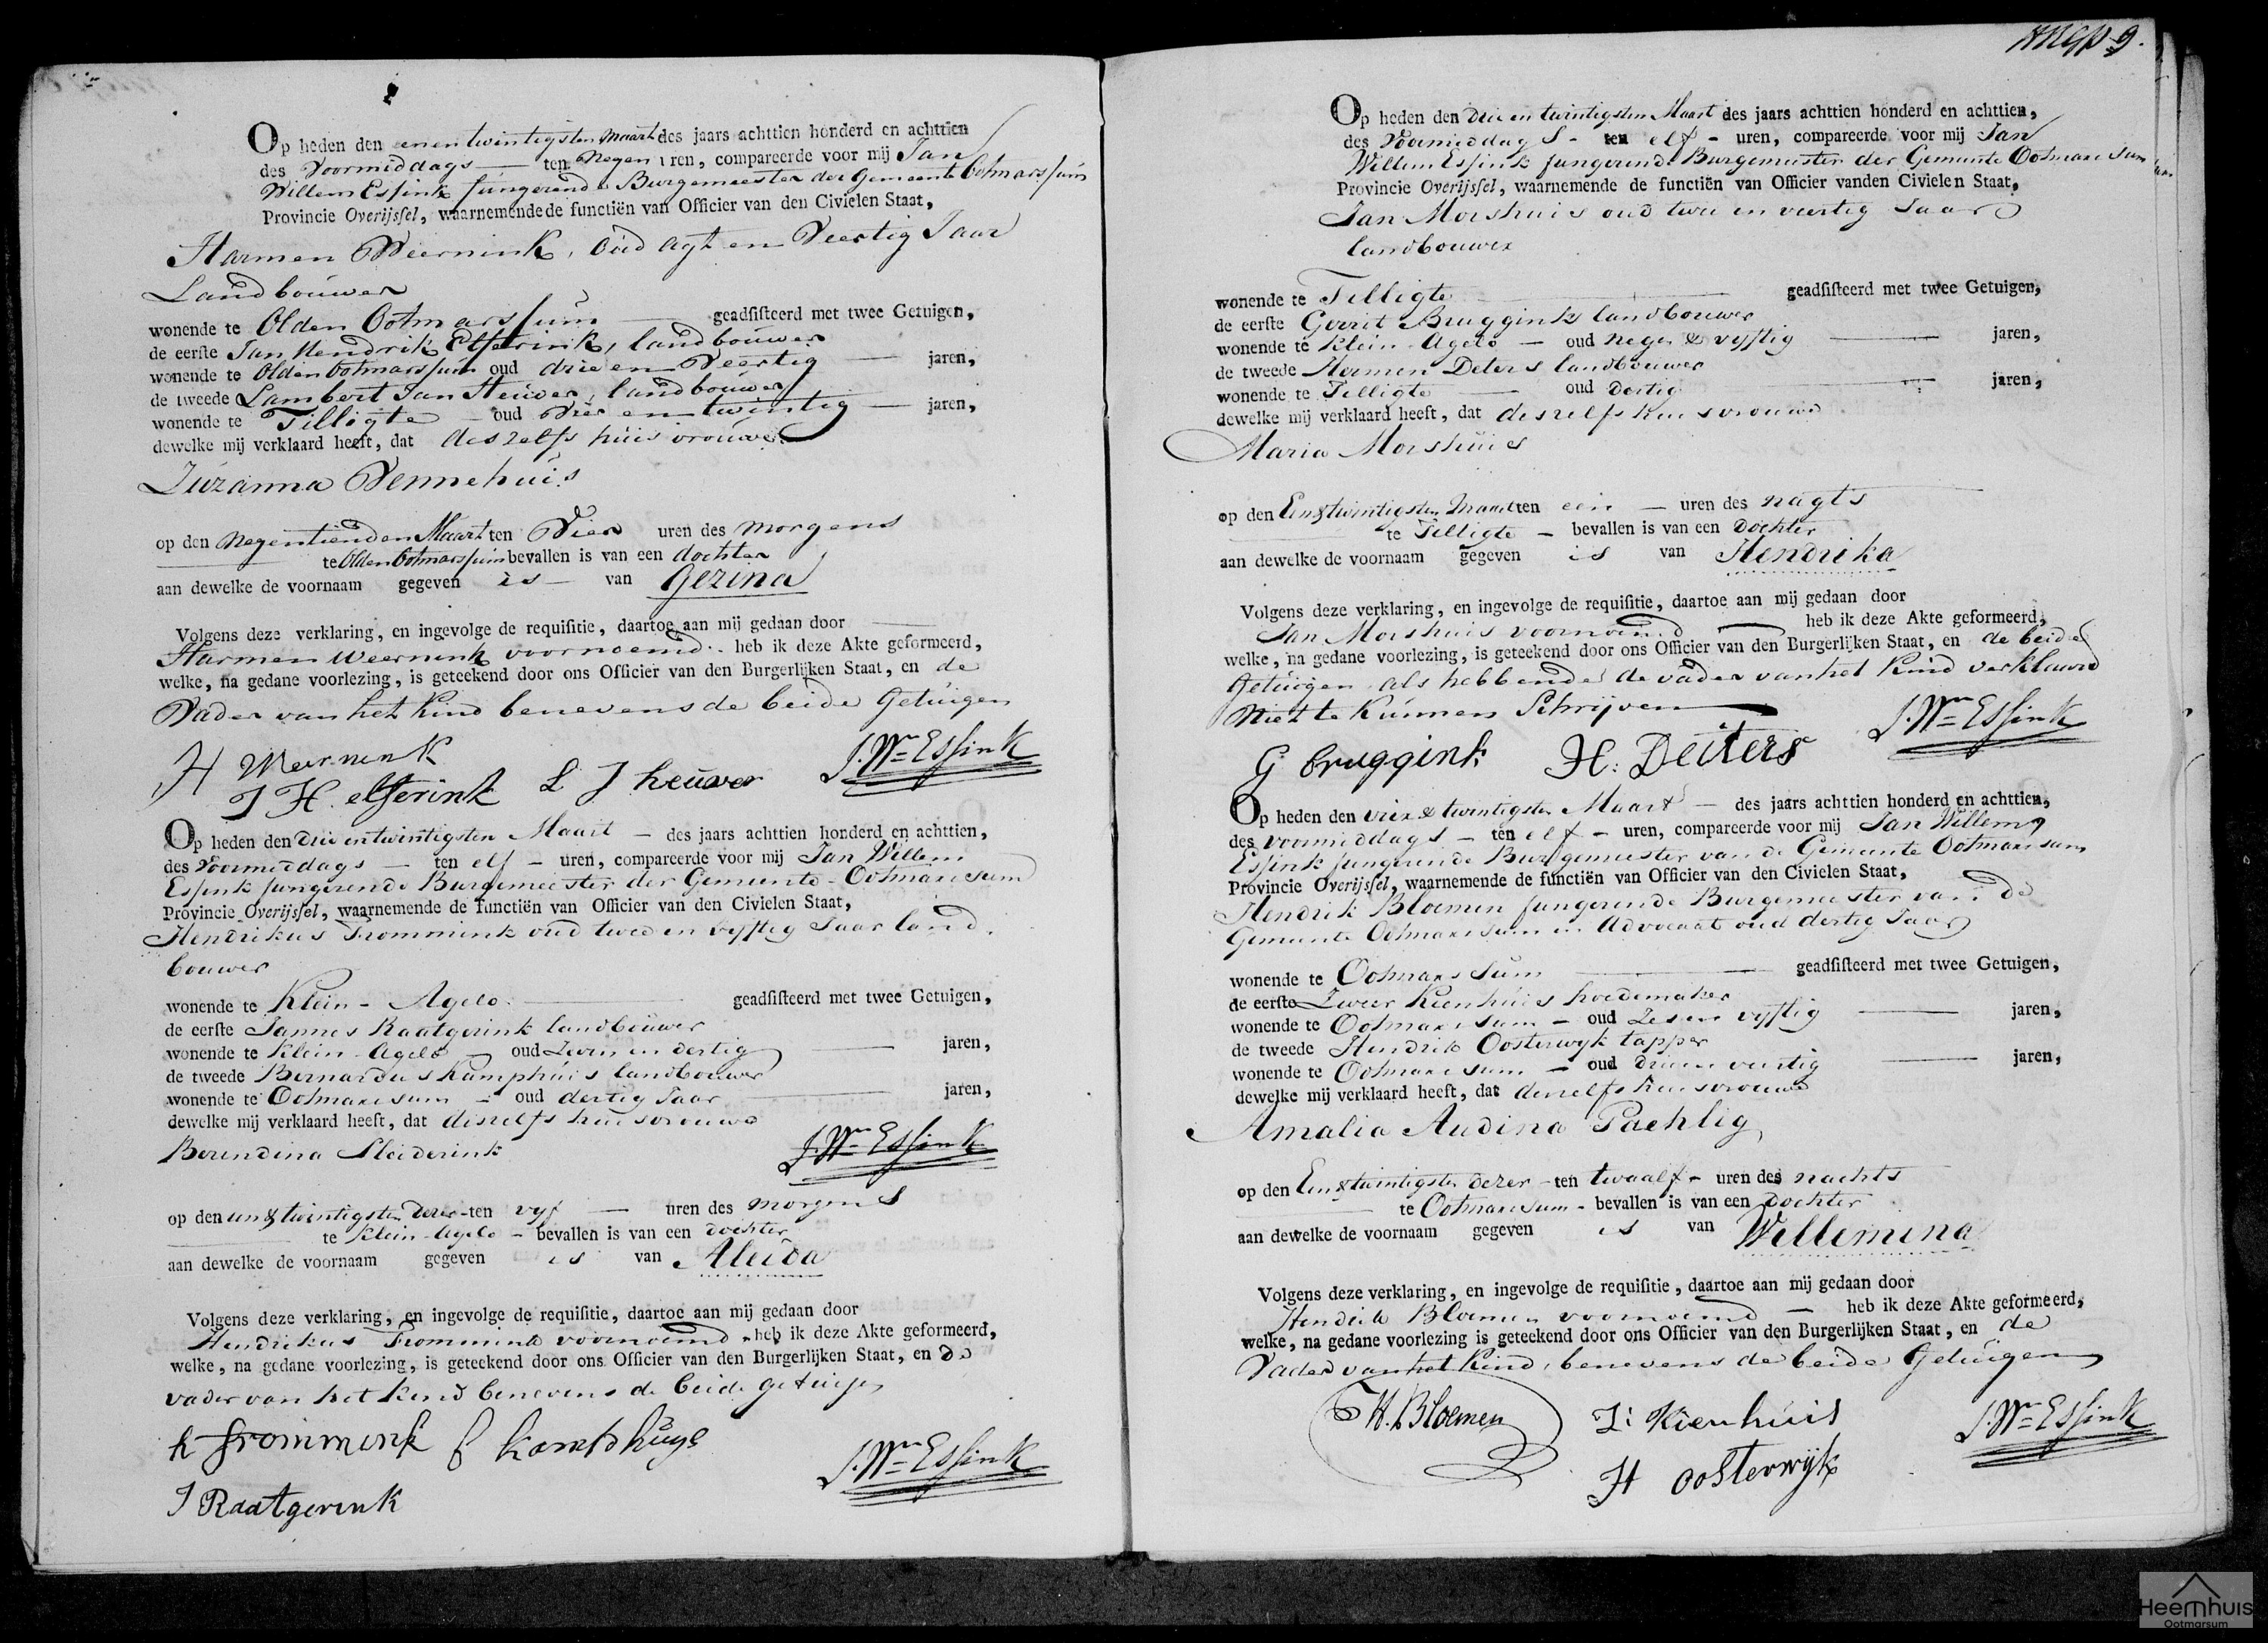 Op heden den eenentwintigsten Maart des jaars achttien honderd en achttien
des Voormiddags — ten Negen uren, compareerde voor mij Jan
Willem Essink fungerende Burgemeester der Gemeente Ootmarssum
Provincie Overijssel, waarnemendede functiën van Officier van den Civielen Staat,
Harmen Weernink, oud agt en Veertig Jaar
Landbouwer
wonende te Olden Ootmarssum — geadsisteerd met twee Getuigen,
de eerste Jan Hendrik Elferink, landbouwer
wonende te Olden Ootmarssum oud drie en Veertig — jaren,
de tweede Lambert Jan Heuver, landbouwer
wonende te Tilligte — oud Vier en twintig — jaren,
dewelke mij verklaard heeft, dat deszelfs huisvrouwe
Zuzanna Vennehuis
op den Negentienden Maart ten Vier uren des morgens
te Olden Ootmarssum bevallen is van een dochter
aan dewelke de voornaam gegeven is — van Gezina
Volgens deze verklaring, en ingevolge de requisitie, daartoe aan mij gedaan door
Harmen Weernink voornoemd heb ik deze Akte geformeerd,
welke, na gedane voorlezing, is geteekend door ons Officier van den Burgerlijken Staat, en de
Vader van het Kind benevens de beide Getuigen
H Weernink J. Wm Essink
J H elferink L J heuver
Op heden den drie en twintigsten Maart — des jaars achttien honderd en achttien,
des Voormiddags — ten elf — uren, compareerde voor mij Jan Willem
Essink fungerende Burgemeester der Gemeente Ootmarssum
Provincie Overijssel, waarnemende de functiën van Officier van den Civielen Staat,
Hendrikus Frommink oud twee en vyftig Jaar land
bouwer
wonende te Klein - Agelo — geadsisteerd met twee Getuigen,
de eerste Jannes Raatgerink landbouwer
wonende te Klein - Agelo — oud Zeven en dertig — jaren,
de tweede Bernardus Kamphuis landbouwer
wonende te Ootmarssum — oud dertig Jaar — jaren,
dewelke mij verklaard heeft, dat deszelfs huisvrouwe
Berendina Sleiderink J. Wm Essink
op den een & twintigsten dezer ten vyf — uren des morgens
te Klein - Agelo - bevallen is van een dochter
aan dewelke de voornaam gegeven is van Aleida
Volgens deze verklaring, en ingevolge de requisitie, daartoe aan mij gedaan door
Hendrikus Frommink voornoemd heb ik deze Akte geformeerd,
welke, na gedane voorlezing, is geteekend door ons Officier van den Burgerlijken Staat, en de
vader van het Kind benevens de beide getuigen
h frommink kamphuys
J. Wm Essink
J Raatgerink
9.
Op heden den drie en twintigsten Maart des jaars achttien honderd en achttien,
des Voormiddags - ten elf - uren, compareerde voor mij Jan
Willem Essink fungerende Burgemeester der Gemeente Ootmarssum
Provincie Overijssel, waarnemende de functiën van Officier vanden Civielen Staat,
Jan Morshuis oud twee en veertig Jaar
landbouwer
wonende te Tilligte — geadsisteerd met twee Getuigen,
de eerste Gerrit Bruggink landbouwer
wonende te Klein - Agelo — oud Negen & vyftig — jaren,
de tweede Hermen Deters landbouwer
wonende te Tilligte — oud dertig — jaren,
dewelke mij verklaard heeft, dat deszelfs huisvrouwe
Maria Morshuis
op den Een & twintigsten Maart ten een — uren des nagts
te Tilligte — bevallen is van een dochter
aan dewelke de voornaam gegeven is van Hendrika
Volgens deze verklaring, en ingevolge de requisitie, daartoe aan mij gedaan door
Jan Morshuis voornoemd — heb ik deze Akte geformeerd,
welke, na gedane voorlezing, is geteekend door ons Officier van den Burgerlijken Staat, en de beide
Getuigen als hebbende de vader van het Kind verklaard
Niet te Kunnen Schrijven J. Wm Essink
G bruggink H. Deiters
Op heden den vier & twintigsten Maart — des jaars achttien honderd en achttien,
des voormiddags — ten elf — uren, compareerde voor mij Jan Willem
Essink fungerende Burgemeester van de Gemeente Ootmarssum
Provincie Overijssel, waarnemende de functiën van Officier van den Civielen Staat,
Hendrik Bloemen fungerende Burgemeester van de
Gemeente Ootmarssum en Advocaat oud dertig Jaar
wonende te Ootmarssum — geadsisteerd met twee Getuigen,
de eerste Zweer Kienhuis hoedemaker
wonende te Ootmarssum — oud Zes en vyftig — jaren,
de tweede Hendrik Oosterwyk tapper
wonende te Ootmarssum — oud drie en veertig — jaren,
dewelke mij verklaard heeft, dat deszelfs huisvrouwe
Amalia Audina Pachlig
op den Een & twintigsten dezer - ten twaalf - uren des nachts
te Ootmarssum - bevallen is van een dochter
aan dewelke de voornaam gegeven is van Willemina
Volgens deze verklaring, en ingevolge de requisitie, daartoe aan mij gedaan door
Hendrik Bloemen voornoemd — heb ik deze Akte geformeerd,
welke, na gedane voorlezing is geteekend door ons Officier van den Burgerlijken Staat, en de
Vader van het Kind, benevens de beide Getuigen
H. Bloemen Z: Kienhuis J. Wm Essink
H oosterwijk
Heemhuis
Ootmarsum